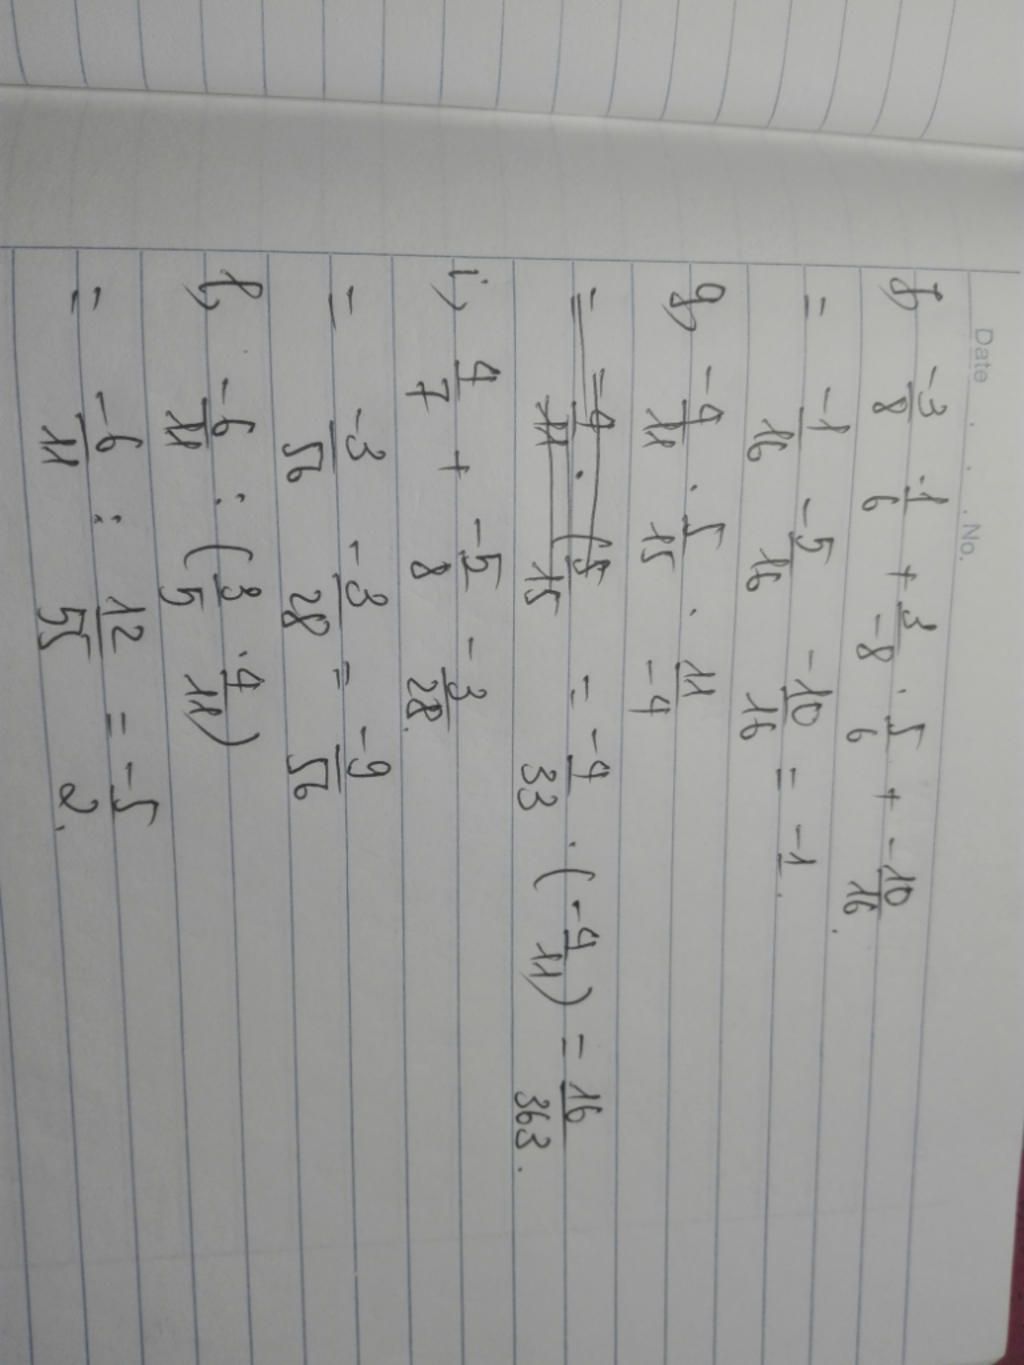 Date . . . No.
f, -3/8 · 1/6 + 3/-8 · 5/6 + -10/16.
= -1/16 - 5/16 - 10/16 = -1.
g, -4/11 · 5/15 · 11/-4
= = -4/11 · (5/15 = -4/33 · (-4/11) = 16/363.
i, 4/7 + -5/8 - 3/28.
= -3/56 - 3/28 = -9/56
l, -6/11 : (3/5 · 4/11)
= -6/11 : 12/55 = -5/2.